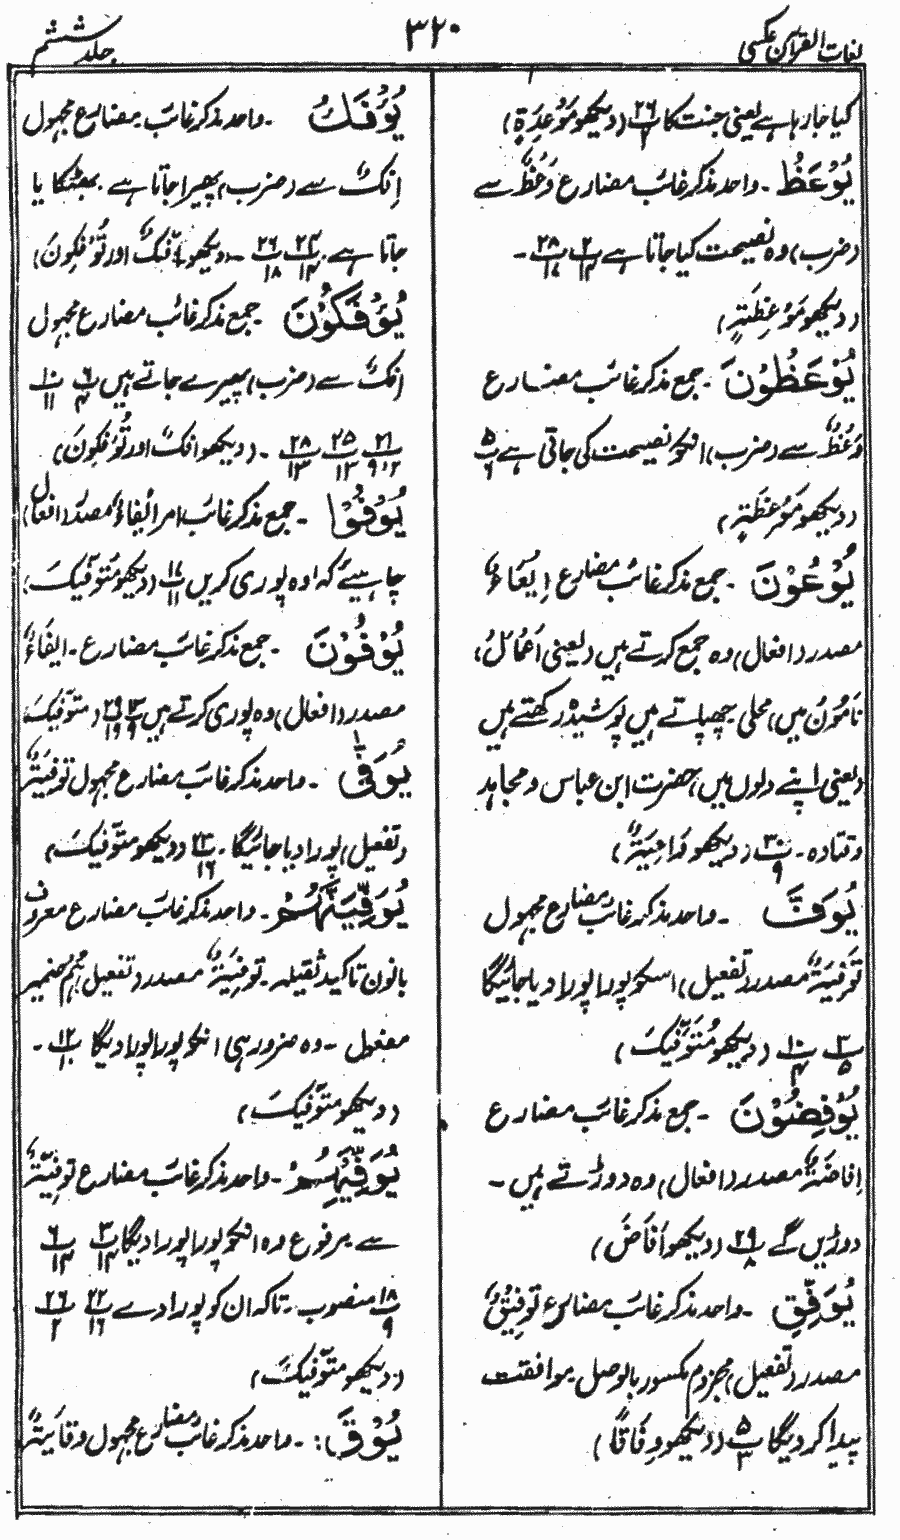 لغات القرآن عکسی
۳۲۰
جلد ششم
کیا جا رہا ہے یعنی جنت کا ۲۶/۲ (دیکھو مَوْعِدَۃٍ)
یُوْعَظُ ۔ واحد مذکر غائب مضارع وَعْظٌ سے
(ضرب) وہ نصیحت کیا جاتا ہے ۲/۱۴ ۲۸/۱۷ ۔
(دیکھو مَوْعِظَۃٍ)
یُوْعَظُوْنَ ۔ جمع مذکر غائب مضارع
وَعْظٌ سے (ضرب) انکو نصیحت کی جاتی ہے ۵/۶
(دیکھو مَوْعِظَۃٍ)
یُوْعُوْنَ ۔ جمع مذکر غائب مضارع اِیْعَاءٌ
مصدر (افعال) وہ جمع کرتے ہیں (یعنی اَعْمَالُ،
نامُوْن میں) محلی چھپاتے ہیں پوشیدہ رکھتے ہیں
(یعنی اپنے دلوں میں) حضرت ابن عباس و مجاہد
و قتادہ ۔ ۳۰/۹ (دیکھو وَاعِیَۃٌ)
یُوَفَّ ۔ واحد مذکر غائب مضارع مجہول
تَوْفِیَۃٌ مصدر (تفعیل) اسکو پورا پورا دیا جائیگا
۳/۵ ۱۰/۴ (دیکھو مُتَوَفِّیْکَ)
یُوْفِضُوْنَ ۔ جمع مذکر غائب مضارع
اِفَاضَۃٌ مصدر (افعال) وہ دوڑتے ہیں ۔
دوڑیں گے ۲۹/۸ (دیکھو اَفَاضَ)
یُوَفِّقِ ۔ واحد مذکر غائب مضارع تَوْفِیْقٌ
مصدر (تفعیل) مجزوم مکسور بالوصل موافقت
پیدا کر دیگا ۵/۳ (دیکھو وِفَاقًا)
یُؤْفَکُ ۔ واحد مذکر غائب مضارع مجہول
اِفْکٌ سے (ضرب) پھیرا جاتا ہے بھٹکا یا
جاتا ہے ۔ ۲۴/۱۲ ۲۶/۱۸ ۔ (دیکھو اِفْکٌ اور تُؤْفَکُوْنَ)
یُؤْفَکُوْنَ ۔ جمع مذکر غائب مضارع مجہول
اِفْکٌ سے (ضرب) پھیرے جاتے ہیں ۶/۱۴ ۱۰/۱۱
۲۱/۲،۹ ۲۵/۱۳ ۲۸/۱۳ ۔ (دیکھو افک اور تُؤْفَکُوْنَ)
یُوْفُوْا ۔ جمع مذکر غائب امر اِیْفَاءٌ مصدر (افعال)
چاہیئے کہ وہ پوری کریں ۱۷/۱۱ (دیکھو مُتَوَفِّیْکَ)
یُوْفُوْنَ ۔ جمع مذکر غائب مضارع ۔ ایفاءٌ
مصدر (افعال) وہ پوری کرتے ہیں ۱۳/۹ ۲۹/۱۹ (متوفیک)
یُوَفّٰی ۔ واحد مذکر غائب مضارع مجہول توفیۃٌ
(تفعیل) پورا دیا جائیگا ۔ ۲۳/۱۶ (دیکھو متوفیک)
یُوَفِّیَنَّھُمْ ۔ واحد مذکر غائب مضارع معروف
بانون تاکید ثقیلہ ۔ توفیۃٌ مصدر (تفعیل) ھُمْ ضمیر
مفعول ۔ وہ ضرور ہی انکو پورا پورا دیگا ۱۲/۱۰ ۔
(دیکھو متوفیک)
یُوَفِّیْھِمْ ۔ واحد مذکر غائب مضارع توفیۃٌ
سے مرفوع وہ انکو پورا پورا دیگا ۳/۱۴ ۶/۱۴
۱۸/۹ منصوب ۔ تاکہ ان کو پورا دے ۲۲/۱۶ ۲۶/۲
(دیکھو متوفیک)
یُوْقَ ۔ واحد مذکر غائب مضارع مجہول وقایۃٌ